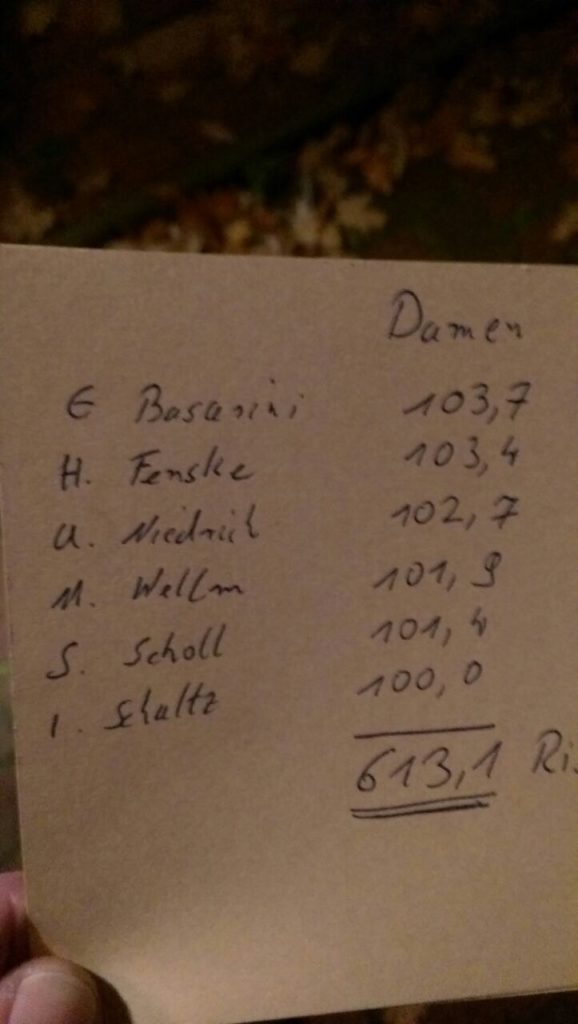 Damen
E Basarini 103,7
H. Fenske 103,4
U. Niedrich 102,7
M. Wellm 101,9
S. Scholl 101,4
I. Schultz 100,0
613,1